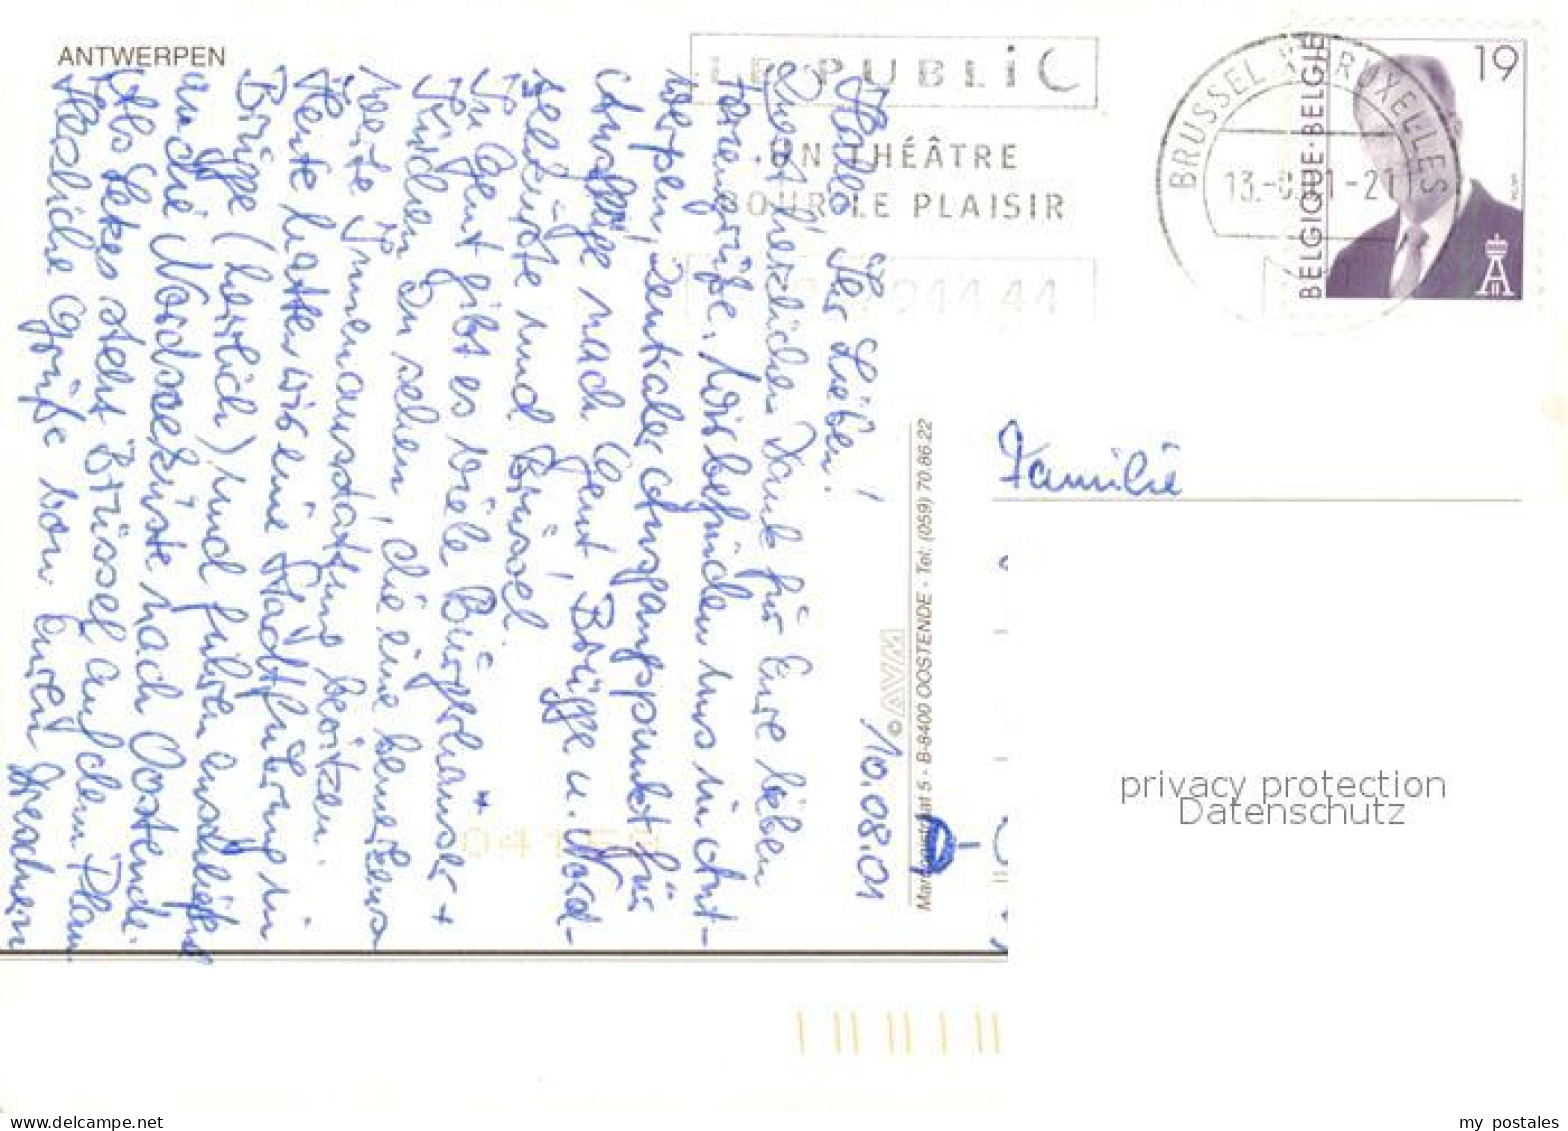 ANTWERPEN
LE PUBLIC
UN THÉÂTRE
POUR LE PLAISIR
BRUSSEL X BRUXELLES
13.-8.01-21
BELGIQUE·BELGIE
19
10.08.01
Hallo Ihr Lieben!
Zuerst herzlichen Dank für Eure lieben
Feriengrüße. Wir befinden uns in Ant-
werpen, zentraler Ausgangspunkt für
Ausflüge nach Gent, Brügge u. Nord-
seeküste und Brüssel.
In Gent gibt es viele Bürgerhäuser +
Kirchen zu sehen, die eine bemerkens-
werte Innenausstattung besitzen.
Heute hatten wir eine Stadtführung in
Brügge (herrlich) und fuhren anschließend
an die Nordseeküste nach Oostende.
Als letztes steht Brüssel auf dem Plan.
Herzliche Grüße von Euren
Familie
© AVM
5 - B-8400 OOSTENDE - Tel: (059) 70.86.22
privacy protection
Datenschutz
my postales